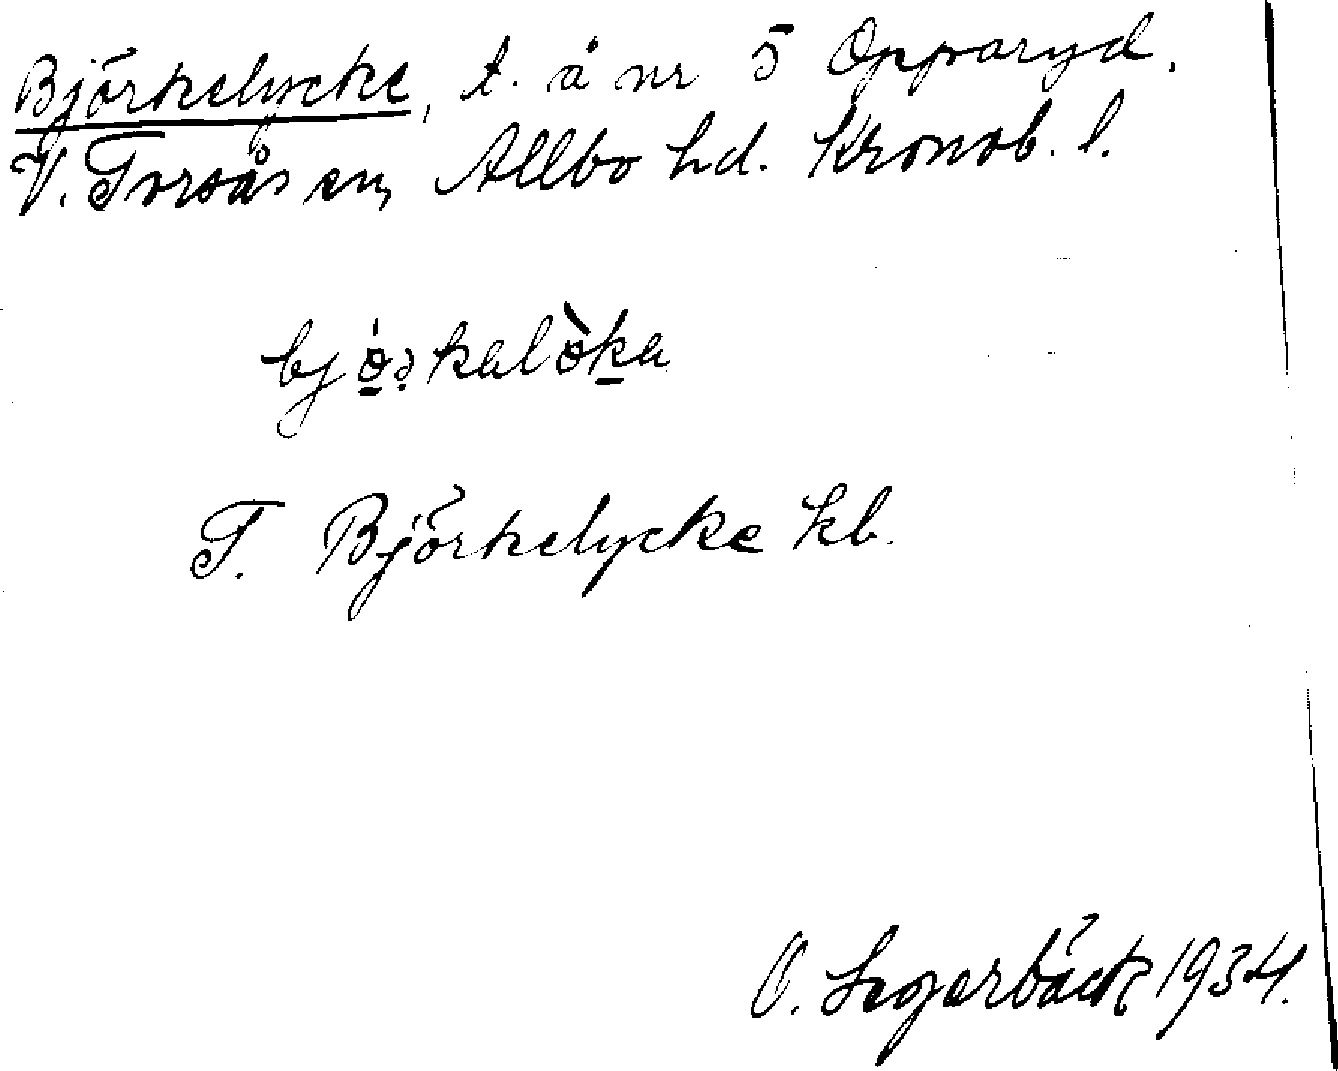 Björkelycke, t. å nr 5 Opparyd.
V. Torsås sn, Allbo hd. Kronob. l.
bjö̱rkalö̀ḵa
T. Björkelycke kb.
O. Segerbäck 1934.